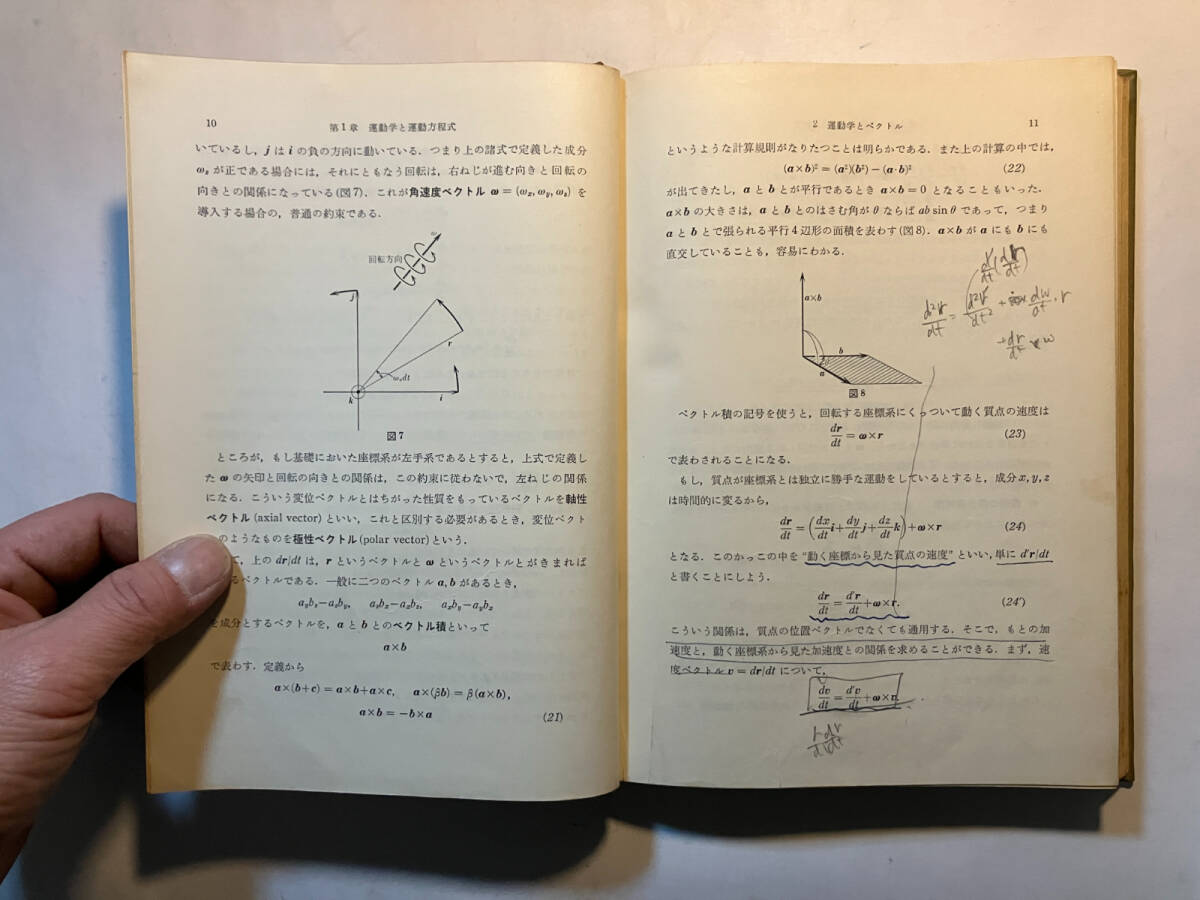 10
第1章 運動学と運動方程式
いているし，jはiの負の方向に動いている．つまり上の諸式で定義した成分
ω_zが正である場合には，それにともなう回転は，右ねじが進む向きと回転の
向きとの関係になっている(図7)．これが角速度ベクトル ω＝(ω_x, ω_y, ω_z) を
導入する場合の，普通の約束である．
ω
回転方向
j
r
ω_z dt
k
i
図7
ところが，もし基礎においた座標系が左手系であるとすると，上式で定義し
た ω の矢印と回転の向きとの関係は，この約束に従わないで，左ねじの関係
になる．こういう変位ベクトルとはちがった性質をもっているベクトルを軸性
ベクトル (axial vector) といい，これと区別する必要があるとき，変位ベクト
のようなものを極性ベクトル (polar vector) という．
て，上の dr/dt は，r というベクトルと ω というベクトルとがきまれば
るベクトルである．一般に二つのベクトル a, b があるとき，
a_y b_z−a_z b_y,　a_z b_x−a_x b_z,　a_x b_y−a_y b_x
を成分とするベクトルを，a と b とのベクトル積といって
a×b
で表わす．定義から
a×(b+c)＝a×b+a×c,　a×(βb)＝β(a×b),
a×b＝−b×a　(21)
2 運動学とベクトル
11
というような計算規則がなりたつことは明らかである．また上の計算の中では，
(a×b)²＝(a²)(b²)−(a·b)²　(22)
が出てきたし，a と b とが平行であるとき a×b＝0 となることもいった．
a×b の大きさは，a と b とのはさむ角が θ ならば ab sin θ であって，つまり
a と b とで張られる平行4辺形の面積を表わす(図8)．a×b が a にも b にも
直交していることも，容易にわかる．
a×b
b
θ
a
図8
ベクトル積の記号を使うと，回転する座標系にくっついて動く質点の速度は
dr/dt＝ω×r　(23)
で表わされることになる．
もし，質点が座標系とは独立に勝手な運動をしているとすると，成分 x, y, z
は時間的に変るから，
dr/dt＝(dx/dt i+dy/dt j+dz/dt k)+ω×r　(24)
となる．このかっこの中を“動く座標から見た質点の速度”といい，単に d′r/dt
と書くことにしよう．
dr/dt＝d′r/dt+ω×r.　(24′)
こういう関係は，質点の位置ベクトルでなくても通用する．そこで，もとの加
速度と，動く座標系から見た加速度との関係を求めることができる．まず，速
度ベクトル v＝dr/dt について，
dv/dt＝d′v/dt+ω×v.